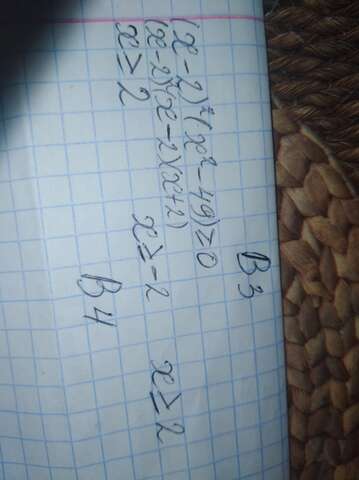 В3
(x-2)²(x²-49)≥0
(x-2)²(x-2)(x+2)
x≥2 x≥-2 x≥2
В4